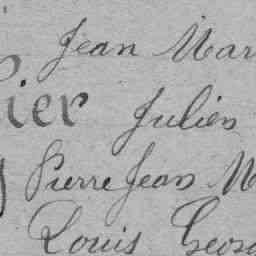 Jean Mar
ier Julien
Pierre Jean M
Louis Geor